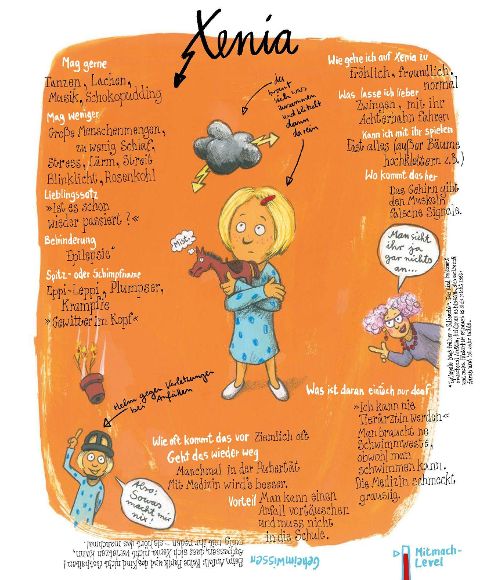 Xenia
Mag gerne
Tanzen, Lachen,
Musik, Schokopudding
Mag weniger
Große Menschenmengen,
zu wenig Schlaf,
Stress, Lärm, Streit
Blinklicht, Rosenkohl
Lieblingssatz
»Ist es schon
wieder passiert?«
Behinderung
Epilepsie*
Spitz- oder Schimpfname
Eppi-Leppi, Plumpser,
Krampfie
»Gewitter im Kopf«
der
braut
sich was
zusammen
und blitzt
dann
darein
Wie gehe ich auf Xenia zu
fröhlich, freundlich,
normal
Was lasse ich lieber
Zwingen, mit ihr
Achterbahn fahren
Kann ich mit ihr spielen
Fast alles (außer Bäume
hochklettern z.B.)
Wo kommt das her
Das Gehirn gibt
den Muskeln
falsche Signale.
Man sieht
ihr ja
gar nichts
an...
Helm gegen Verletzungen
bei Anfällen
Also:
Sowas
macht mir
nix!
Wie oft kommt das vor Ziemlich oft
Geht das wieder weg
Manchmal in der Pubertät
Mit Medizin wird's besser.
Vorteil Man kann einen
Anfall vortäuschen
und muss nicht
in die Schule.
Was ist daran einfach nur doof
»Ich kann nie
Tierärztin werden«
Man braucht ne
Schwimmweste,
obwohl man
schwimmen kann.
Die Medizin schmeckt
grausig.
Geheimwissen
Beim Anfall: Keine Panik
Aufpassen, dass sich Xenia nicht verletzen kann,
Mitmach-
Level